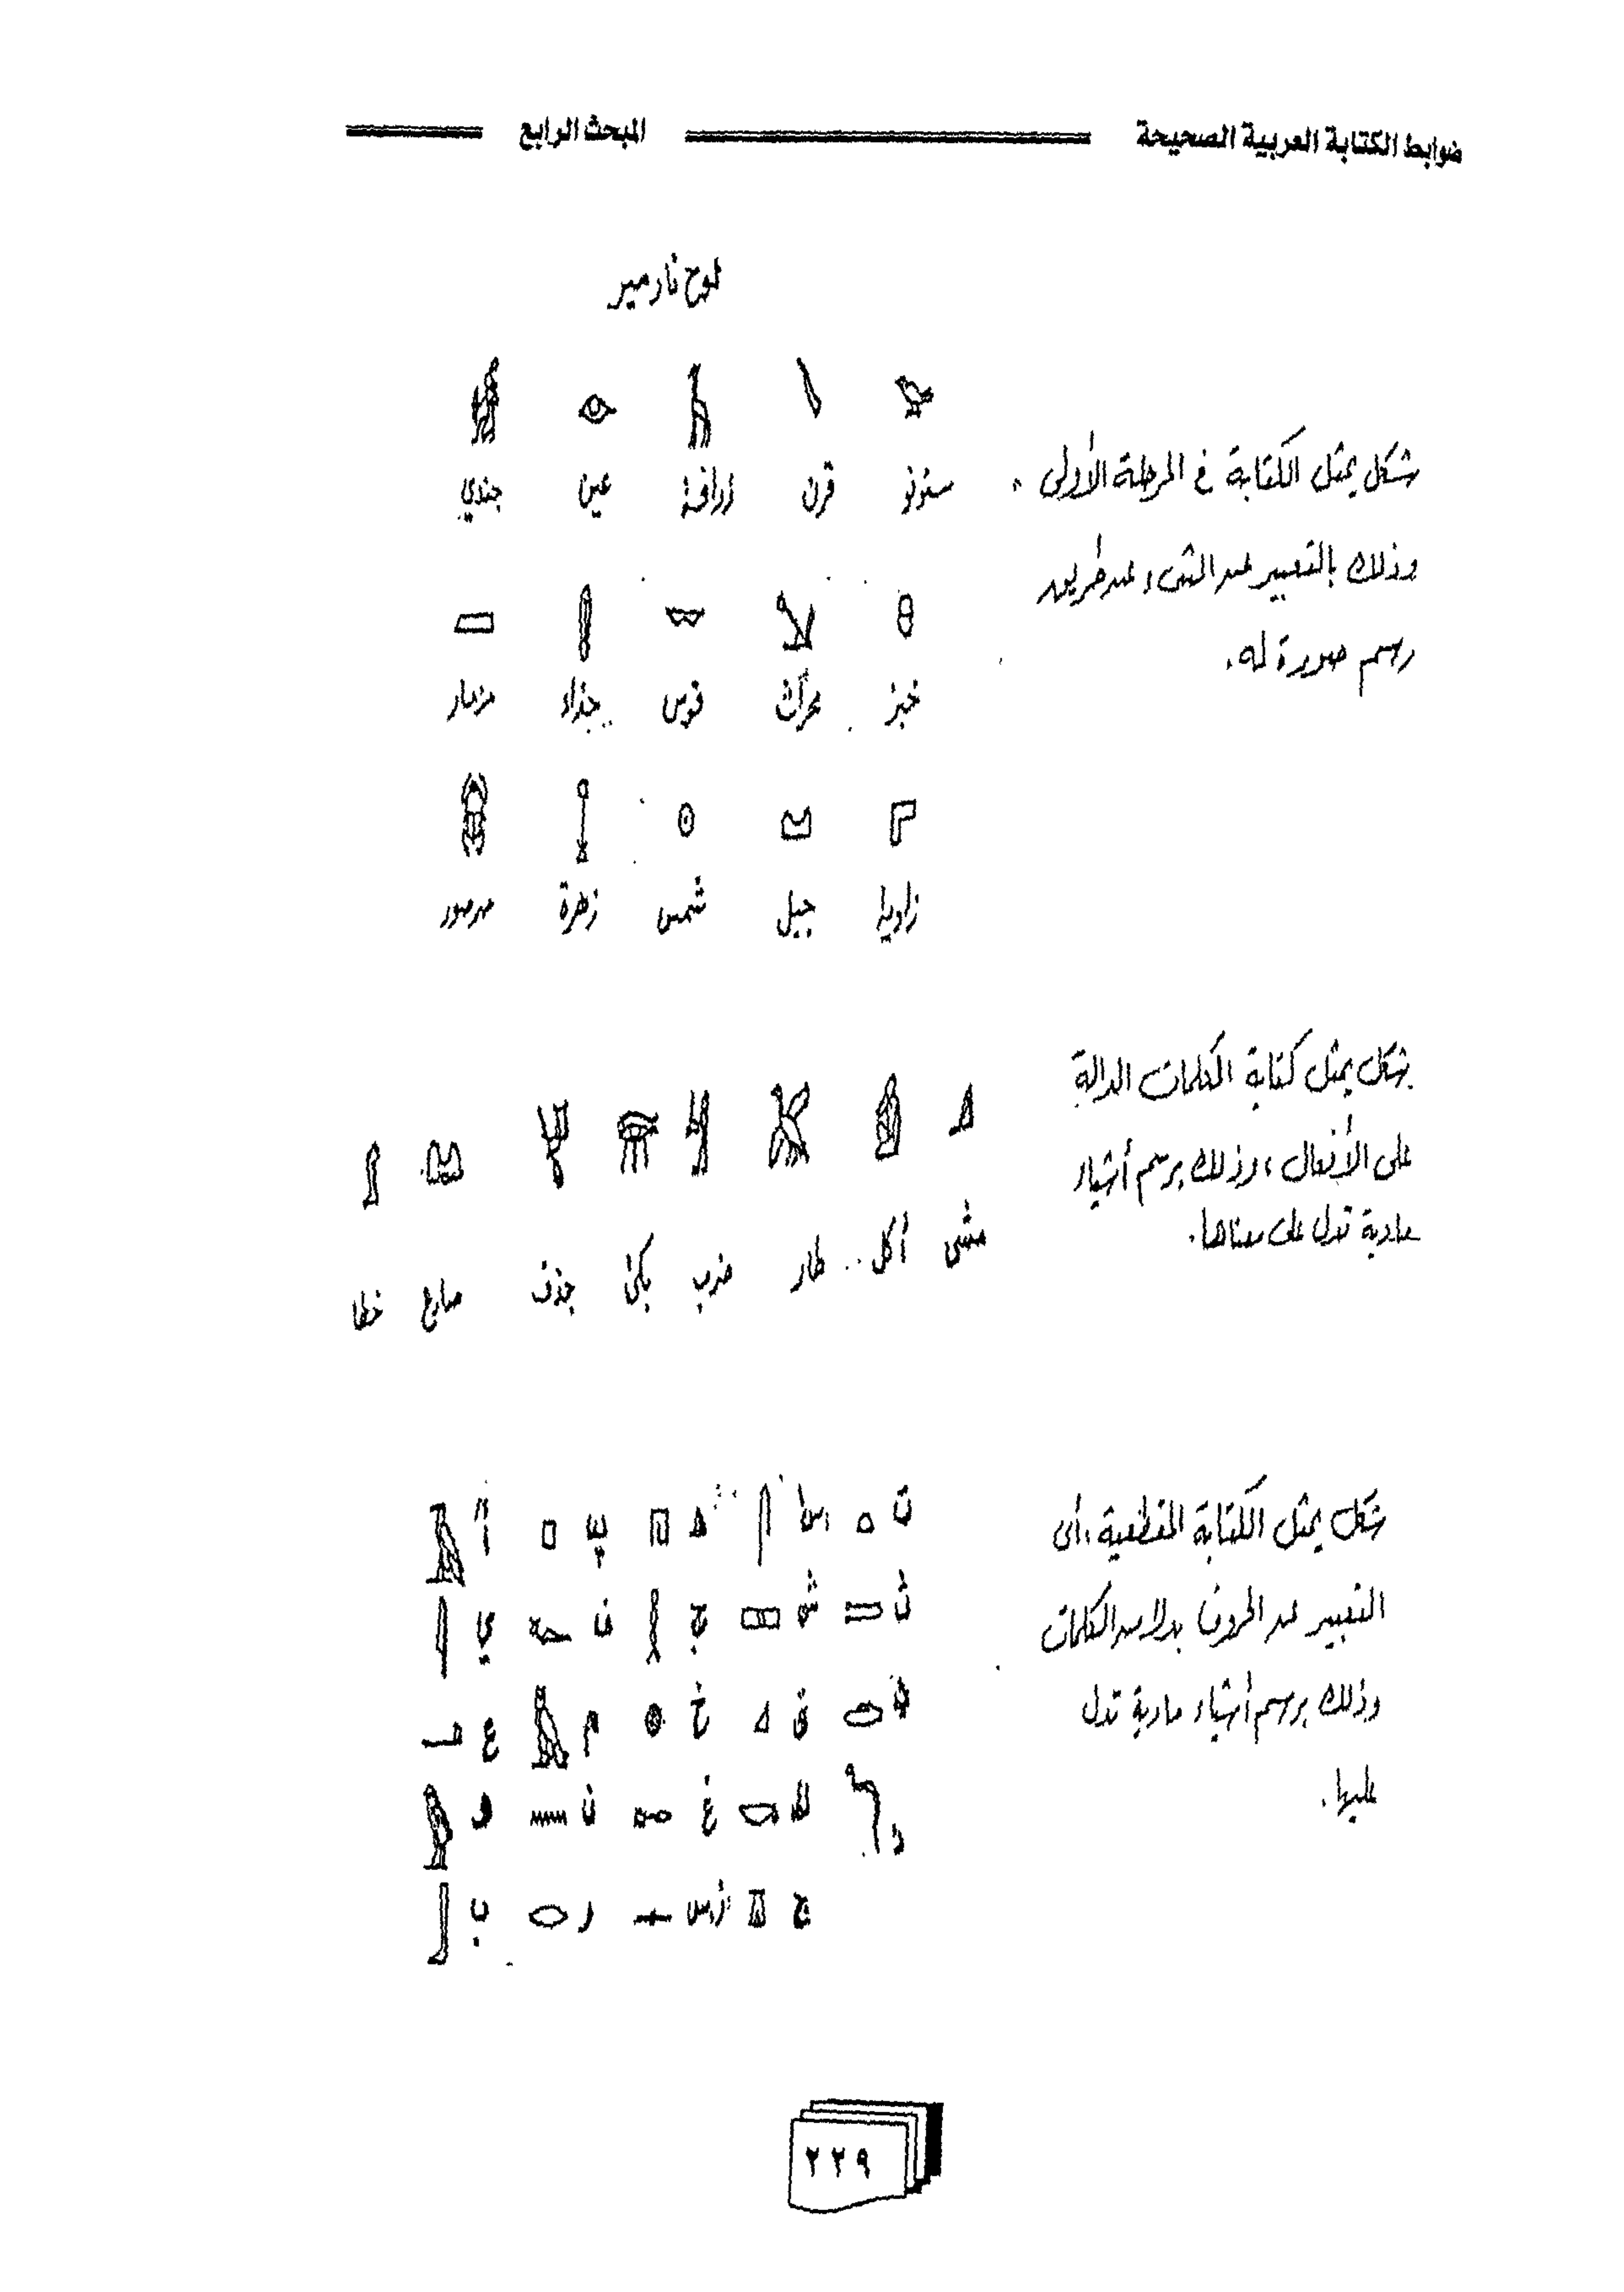 ضوابط الكتابة العربية الصحيحة المبحث الرابع
لوح نارمير
شكل يمثل الكتابة في المرحلة الأولى،
وذلك بالتعبير عن الشيء عن طريق
رسم صورة له.
سنونو قرن زرافة عين جندي
خبز محراث قوس حذاء مزمار
زاوية جبل شمس زهرة صرصور
شكل يمثل كتابة الكلمات الدالة
على الأفعال، وذلك برسم أشياء
مادية تدل على معناها.
مشى أكل طار ضرب بكى جذف صارع خطا
شكل يمثل الكتابة المقطعية، أي
التعبير عن الحروف بدلا من الكلمات
وذلك برسم أشياء مادية تدل
عليها.
ت أس هـ پ أ
ث ش ح ف ي
ق خ م ع
د ك غ ن و
ج ر ب
٢٢٩